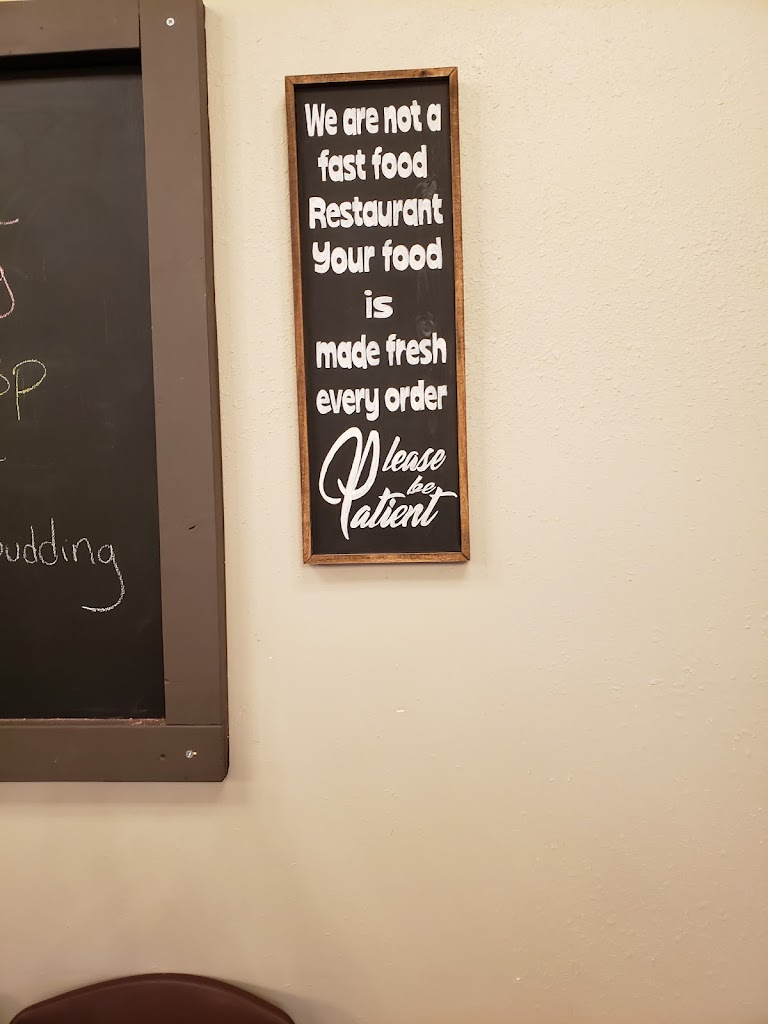 We are not a
fast food
Restaurant
Your food
is
made fresh
every order
Please
be
Patient
pudding